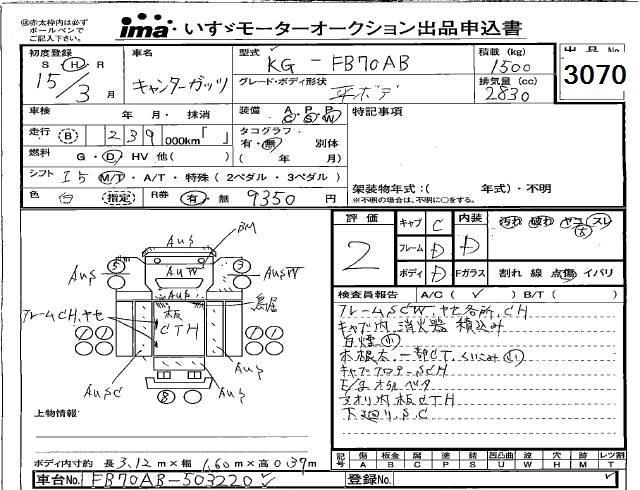 ㊟赤太枠内は必ず
ボールペンで
ご記入下さい。
ima いすゞモーターオークション出品申込書
出品No.
3070
初度登録
S Ⓗ R
15年3月
車名
キャンターガッツ
型式
KG-FB70AB
積載 (kg)
1500
グレード・ボディ形状
平ボデー
排気量 (cc)
2830
車検 年・月・抹消
装備 A P P
C S W
特記事項
走行 (B) 239,000km「 」
タコグラフ
有・無 別体
( 年 月)
燃料 G・D・HV 他( )
シフト I5 M/T・A/T・特殊 (2ペダル・3ペダル)
架装物年式:( 年式)・不明
※不明の場合は、不明に○をする。
色 白 (指定) R券 有・無 9350円
評価
2
キャブ C
フレーム D
ボディ D
内装 D
Fガラス
汚れ 破れ ヤコゲ スレ
大
割れ 線 点傷 イバリ
検査員報告 A/C ( ✓ ) B/T ( )
フレームSCW.ヤセ各所.CH
キャブ内 消火器 積込み
白煙 小
木根太.一部CT.くいこみ 小
キャブフロアーSCH
E/gオイルベタ
アオリ内板CTH
下廻り.S.C
BM
AUS
AUW
AUS
AUSW
AUS
フレームCH.ヤセ
板
CTH
鳥居
AUSC
AUS
AUS
5
7
8
上物情報:
ボディ内寸約 長 3.12m×幅 1.60m×高 0.37m
記号 傷 板金 腐 塗 錆 凹凸曲 波 穴 跡 レンズ割
A B C P S U W H M T
車台No. FB70AB-503220 ✓
登録No.